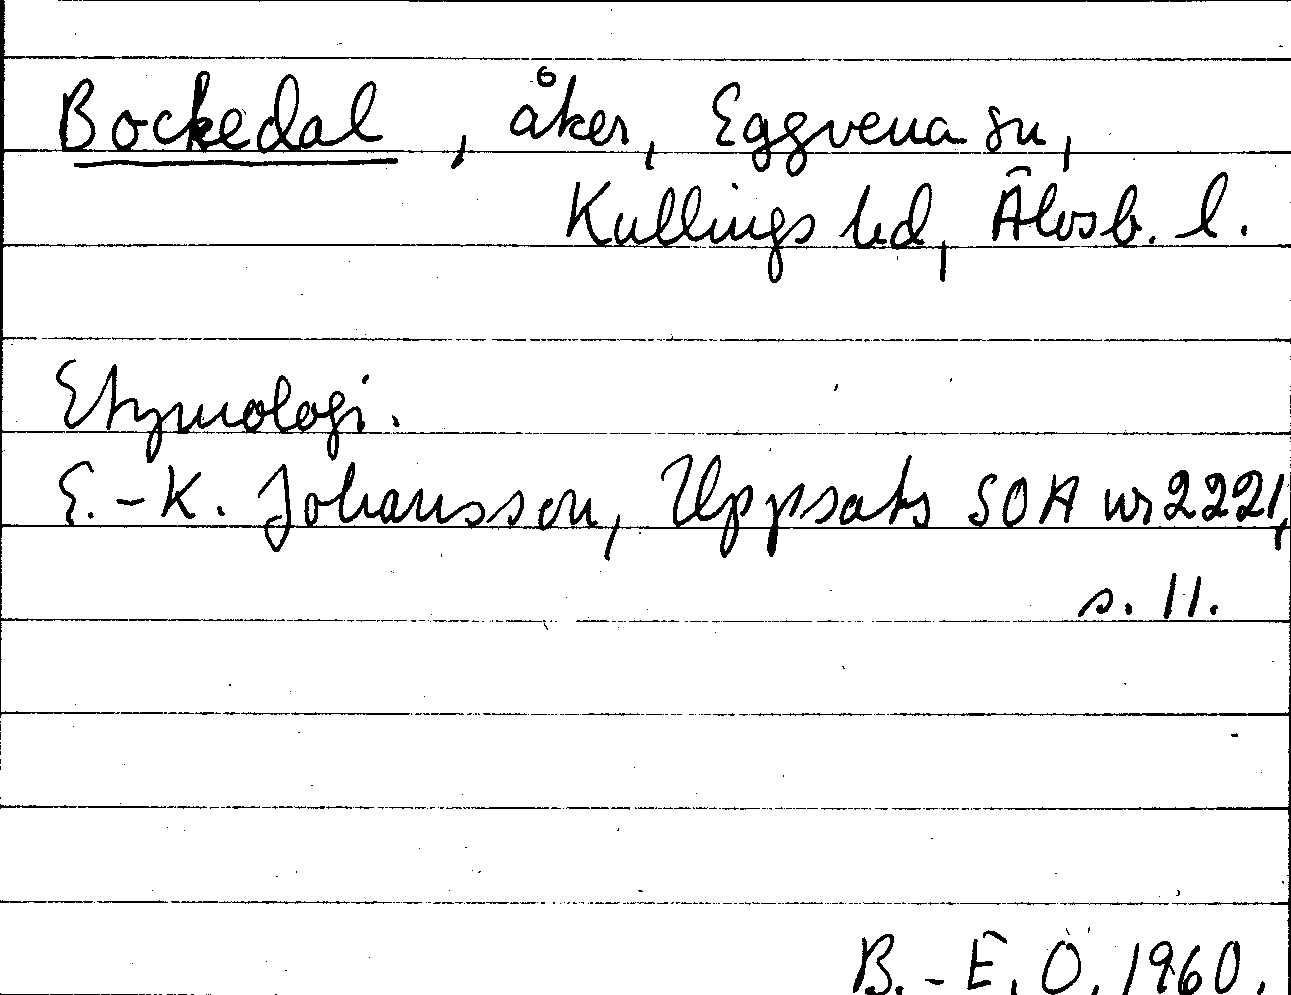 Bockedal, åker, Eggvena sn,
Kullings hd, Älvsb. l.
Etymologi.
E.-K. Johansson, Uppsats SOA nr 2221,
s. 11.
B.-E. Ö. 1960.